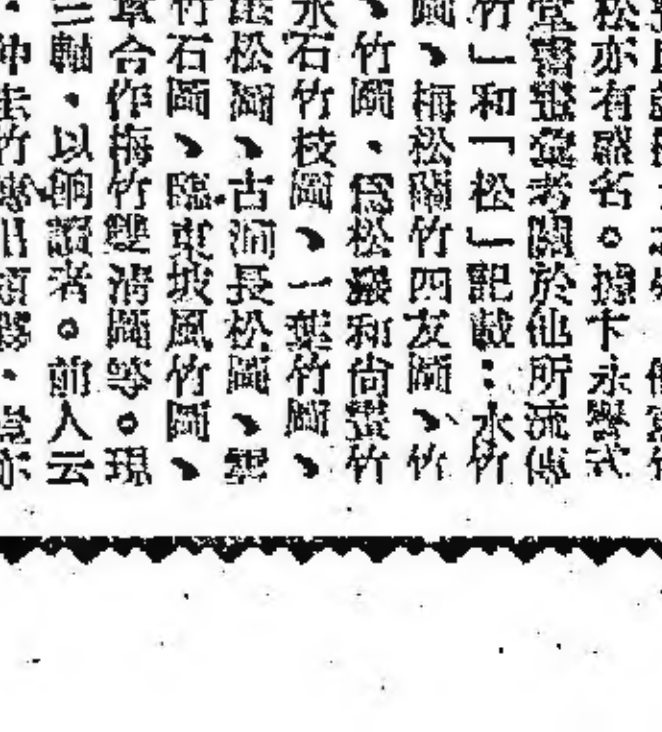 松亦有盛名。據卞永譽式
堂書畫彙考關於他所流傳
竹」和「松」記載：水竹
圖、梅松蘭竹四友圖、竹
、竹圖、爲松巖和尚畫竹
水石竹枝圖、一葉竹圖、
松圖、古澗長松圖、雲
竹石圖、臨東坡風竹圖、
章合作梅竹雙清圖等。現
三軸，以餉讀者。前人云